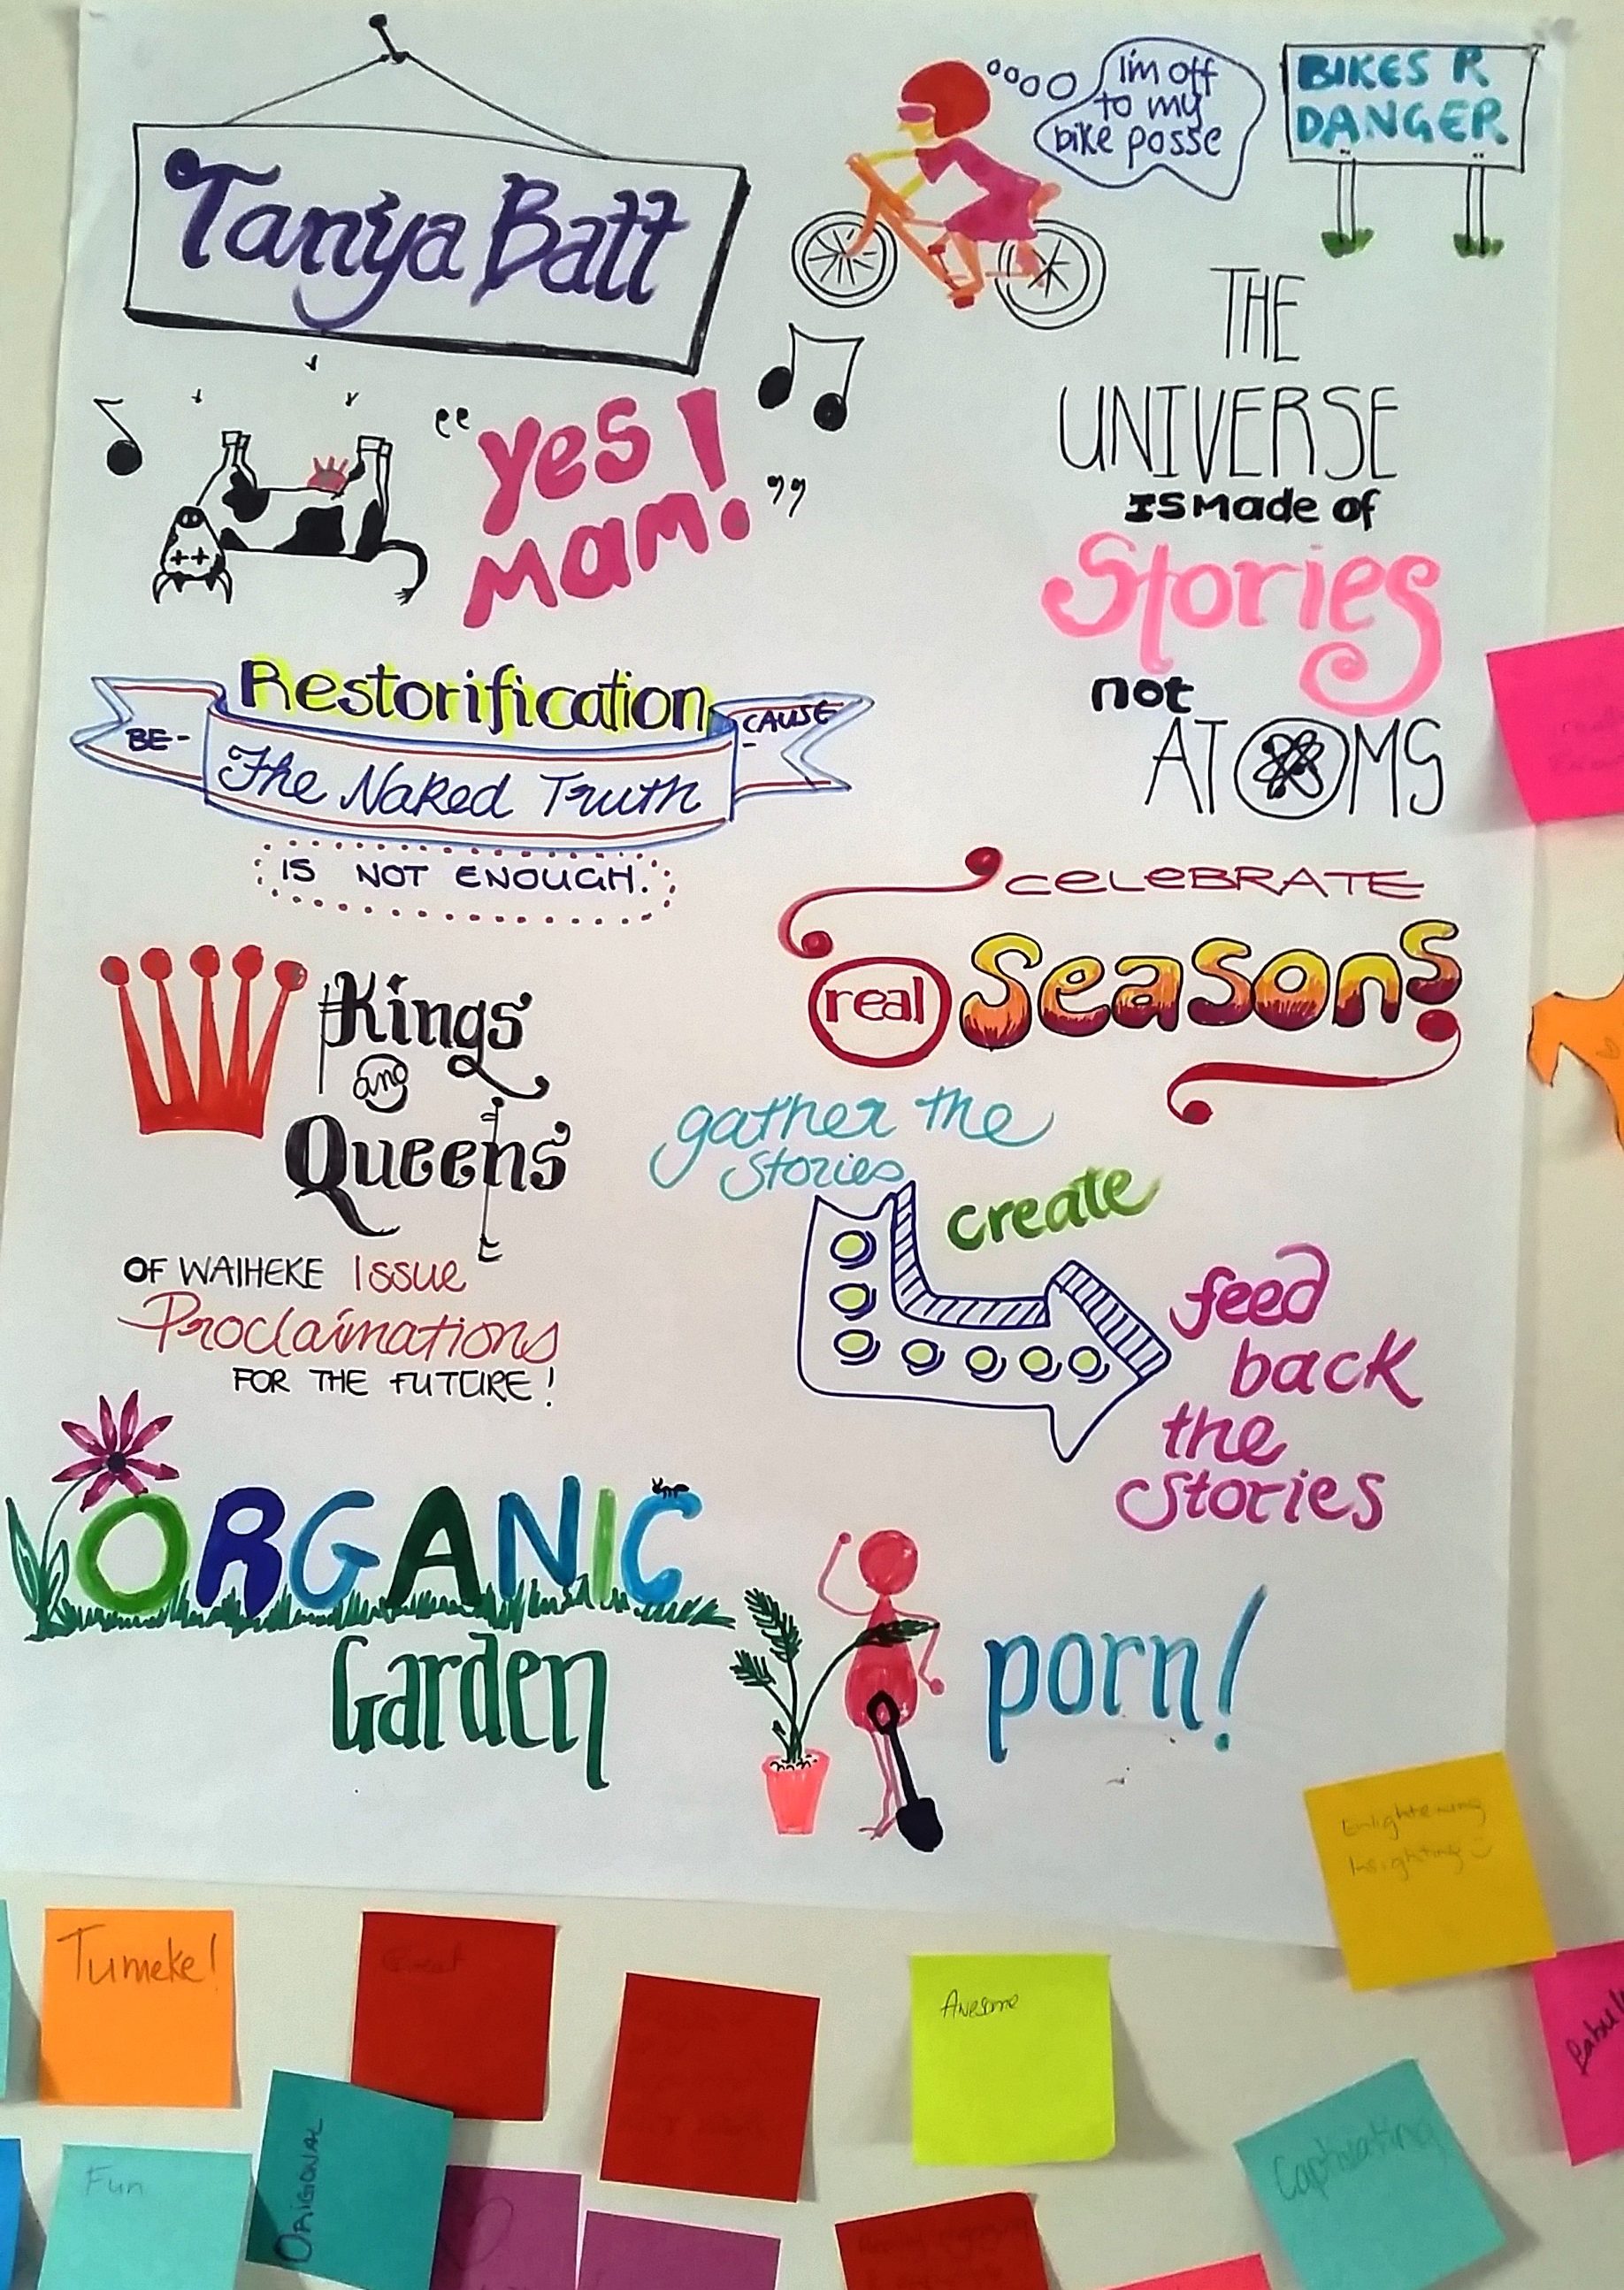 Tanya Batt
I'm off
to my
bike posse
BIKES R
DANGER
"yes!
mam!"
THE
UNIVERSE
IS Made of
Stories
not
ATOMS
Restorification
BE-
CAUSE
The Naked Truth
IS NOT ENOUGH.
CELEBRATE
real Seasons
Kings
and
Queens
OF WAIHEKE Issue
Proclaimations
FOR THE FUTURE!
gather the
stories
create
feed
back
the
stories
ORGANIC
Garden
porn!
Enlightening
Insighting
Tumeke!
Great
Awesome
ORIGIONAL
Fun
Captivating